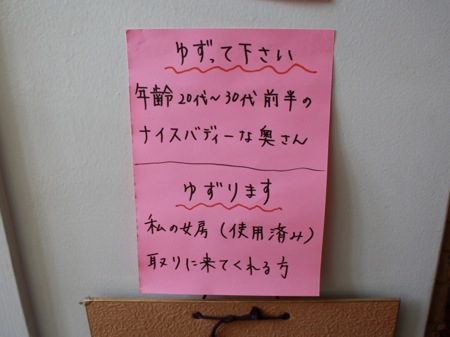 ゆずって下さい
年齢20代～30代前半の
ナイスバディーな奥さん
ゆずります
私の女房(使用済み)
取りに来てくれる方